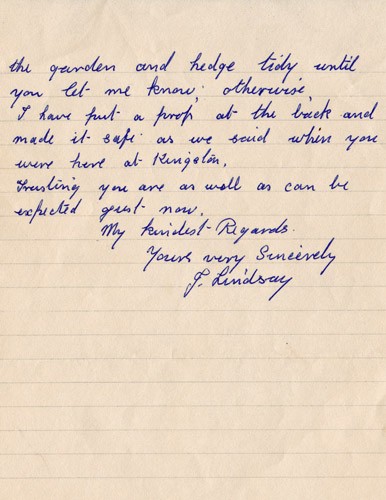 the garden and hedge tidy until
you let me know; otherwise,
I have put a prop at the back and
made it safe as we said when you
were here at Kingston.
Trusting you are as well as can be
expected just now.
My kindest Regards.
Yours very Sincerely
J. Lindsay